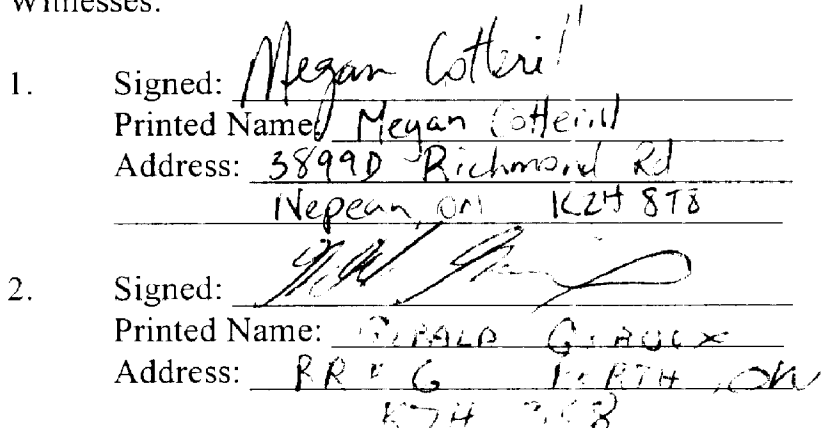 Witnesses:
1. Signed: Megan Cotterill
Printed Name: Megan Cotterill
Address: 3899D Richmond Rd
Nepean, ON K2H 8T8
2. Signed:
Printed Name: GERALD
Address: RR # 6 PERTH, ON
K7H